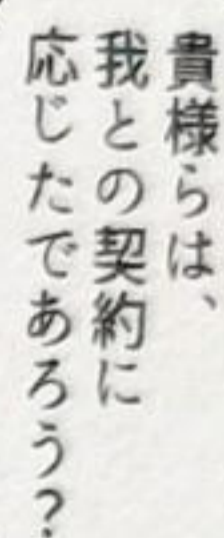 貴様らは、
我との契約に
応じたであろう？